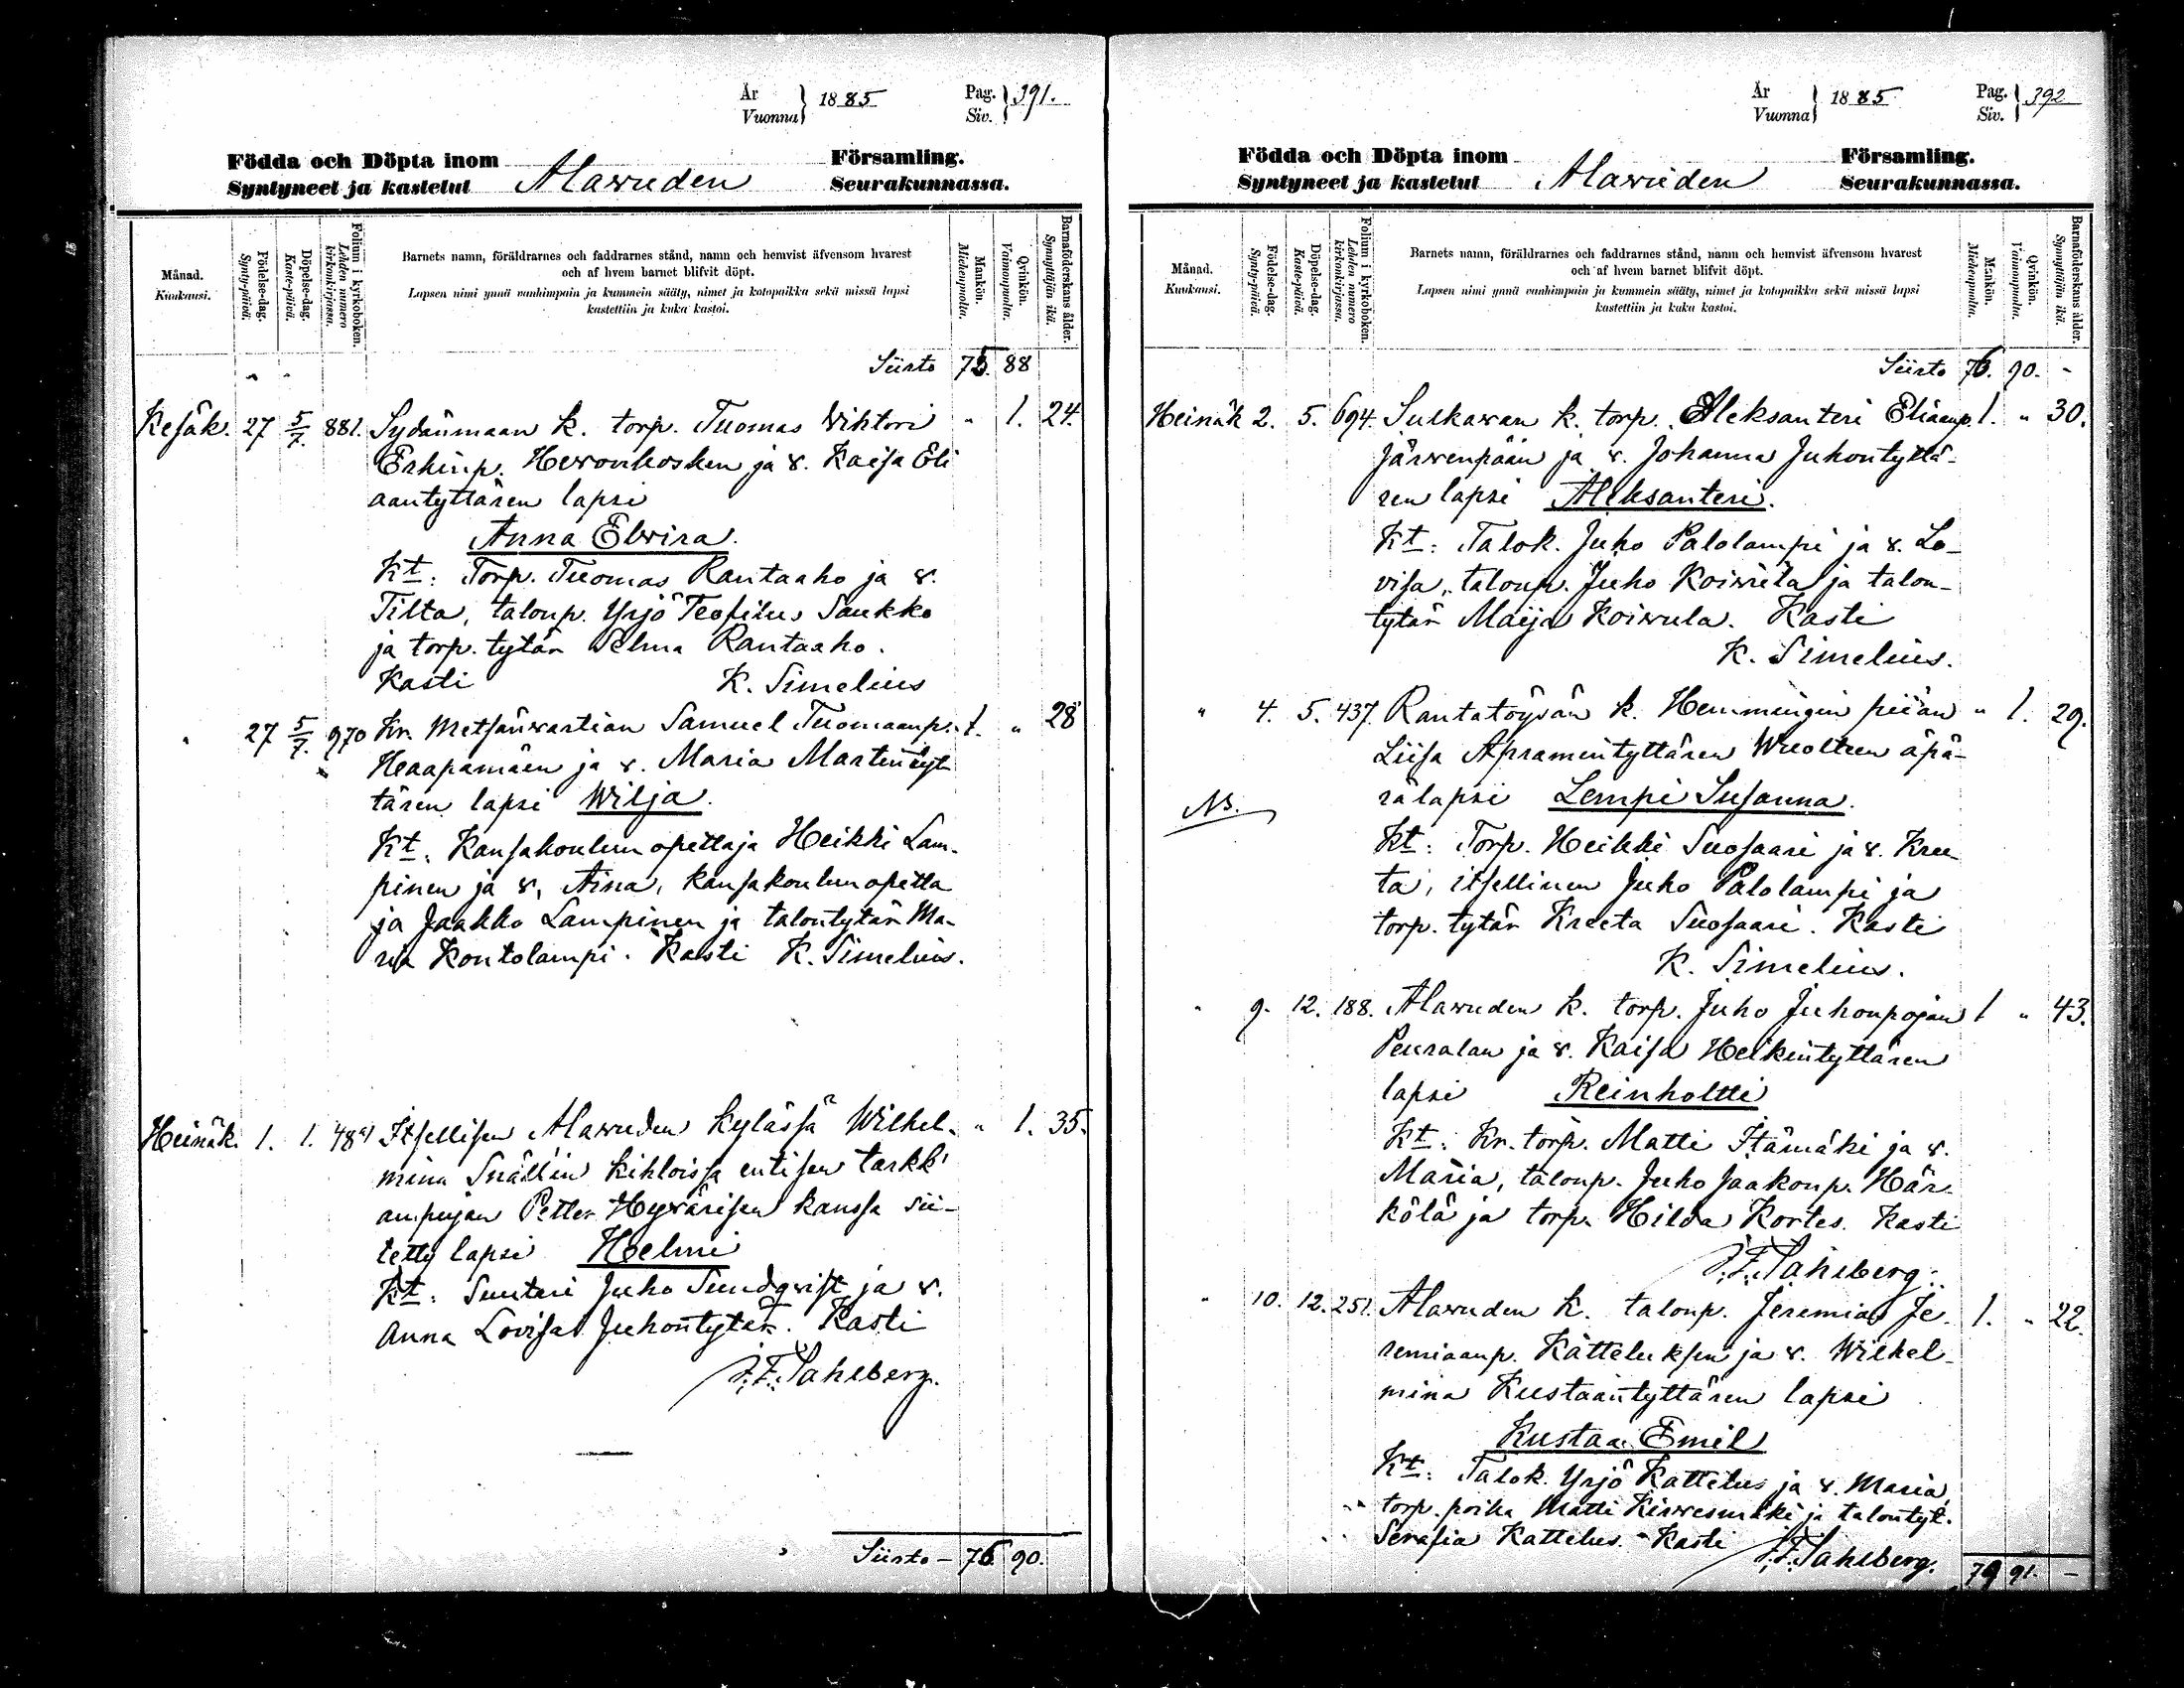 År
Vuonna } 1885 Pag.
Siv. } 391.
Födda och Döpta inom Församling.
Syntyneet ja kastetut Alawuden Seurakunnassa.
Månad.
Kuukausi.
Födelse-dag.
Synty-päivä.
Döpelse-dag.
Kaste-päivä.
Folium i kyrkoboken.
Lehden numero kirkonkirjassa.
Barnets namn, föräldrarnes och faddrarnes stånd, namn och hemvist äfvensom hvarest
och af hvem barnet blifvit döpt.
Lapsen nimi ynnä vanhimpain ja kummein sääty, nimet ja kotopaikka sekä missä lapsi
kastettiin ja kuka kastoi.
Mankön.
Miehenpuolta.
Qvinkön.
Vaimonpuolta.
Barnaföderskans ålder.
Synnyttäjän ikä.
Siirto 75. 88
Kesäk. 27 5/7. 881. Sydänmaan k. torp. Tuomas Wihtori " 1. 24.
Erkinp. Hewonkosken ja v. Kaisa Eli
aantyttären lapsi
Anna Elwira.
Kt: Torp. Tuomas Rantaaho ja v.
Tilta, taloup. Yrjö Teofilus Saukko
ja torp. tytär Selma Rantaaho.
Kasti K. Simelius
" 27 5/7. 970 Kr. Metsänwartian Samuel Tuomaanp. 1. " 28
Haapamäen ja v. Maria Martintyt
tären lapsi Wilja.
Kt: Kansakoulun opettaja Heikki Lam-
pinen ja v. Aina, kansakoulun opetta
ja Jaakko Lampinen ja talontytär Ma-
ria Kontolampi. Kasti K. Simelius.
Heinäk. 1. 1. 48 Itsellisen Alawuden kylässä Wilhel- " 1. 35.
mina Snällin kihloissa entisen tarkk'
ampujan Petter Hywärisen kanssa sii-
tetty lapsi Helmi
Kt: Suutari Juho Sundqvist ja v.
Anna Lovisa Juhontytär. Kasti
J. F. Sahlberg.
Siirto - 76 90.
År
Vuonna } 1885 Pag.
Siv. } 392
Födda och Döpta inom Församling.
Syntyneet ja kastetut Alawuden Seurakunnassa.
Månad.
Kuukausi.
Födelse-dag.
Synty-päivä.
Döpelse-dag.
Kaste-päivä.
Folium i kyrkoboken.
Lehden numero kirkonkirjassa.
Barnets namn, föräldrarnes och faddrarnes stånd, namn och hemvist äfvensom hvarest
och af hvem barnet blifvit döpt.
Lapsen nimi ynnä vanhimpain ja kummein sääty, nimet ja kotopaikka sekä missä lapsi
kastettiin ja kuka kastoi.
Mankön.
Miehenpuolta.
Qvinkön.
Vaimonpuolta.
Barnaföderskans ålder.
Synnyttäjän ikä.
Siirto 76. 90. -
Heinäk 2. 5. 694. Sulkawan k. torp. Aleksanteri Eliaanp. 1. " 30.
Järwenpään ja v. Johanna Juhontyttä-
ren lapsi Aleksanteri.
Kt: Talok. Juho Palolampi ja v. Lo-
visa, taloup. Juho Koiwula ja talon-
tytär Maija Koiwula. Kasti
K. Simelius.
" 4. 5. 437. Rantatöysän k. Hemmingin piian " 1. 29.
Liisa Apramintyttären Wuolteen äpä-
NB. rälapsi Lempi Susanna.
Kt: Torp. Heikki Suosaari ja v. Kree
ta, itsellinen Juho Palolampi ja
torp. tytär Kreeta Suosaari. Kasti
K. Simelius.
" 9. 12. 188. Alawuden k. torp. Juho Juhonpojan 1 " 43.
Peuralan ja v. Kaisa Heikintyttären
lapsi Reinholtti
Kt: Kr. torp. Matti Itämäki ja v.
Maria, taloup. Juho Jaakonp. Här-
kölä ja torp. Hilda Kortes. Kasti
J. F. Sahlberg.
" 10. 12. 251. Alawuden k. taloup. Jeremias Je- 1. " 22.
remiaanp. Katteluksen ja v. Wilhel-
mina Kustaantyttären lapsi
Kustaa Emil
Kt: Talok. Yrjö Kattelus ja v. Maria,
torp. poika Matti Kirwesmäki ja talontyt.
Serafia Kattelus. Kasti J. F. Sahlberg.
79 91. -